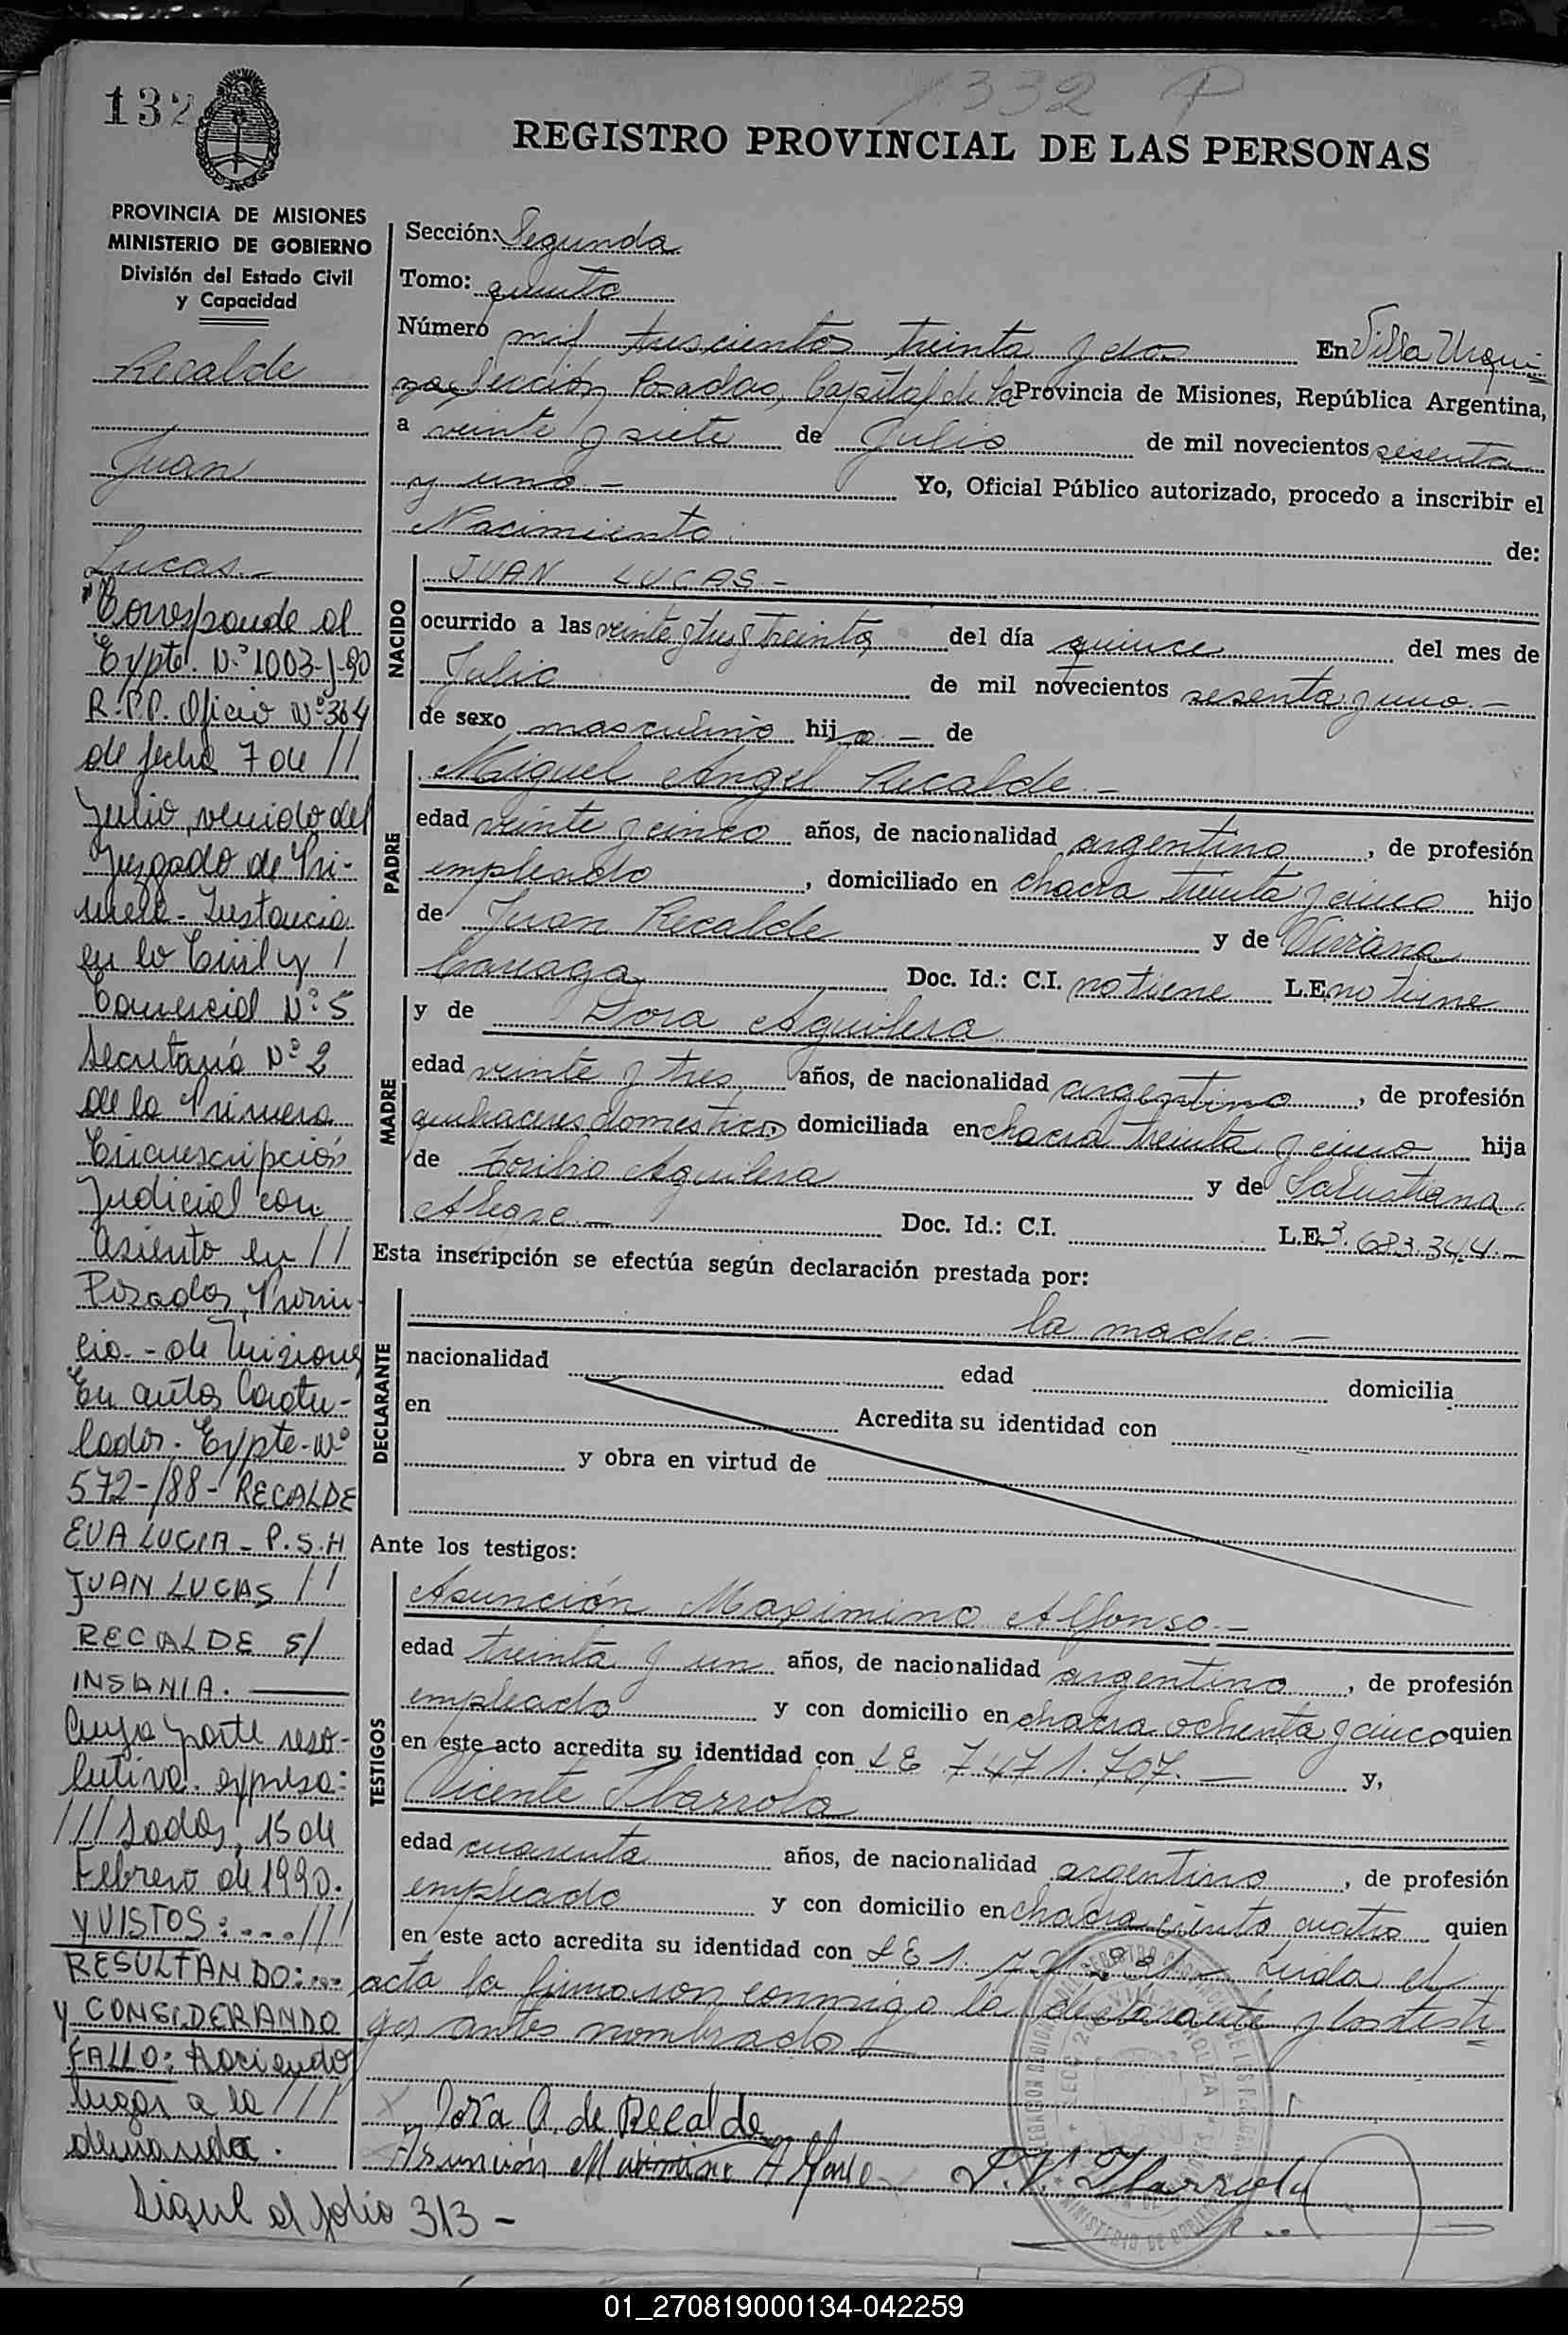 132
1332
REGISTRO PROVINCIAL DE LAS PERSONAS
PROVINCIA DE MISIONES
MINISTERIO DE GOBIERNO
División del Estado Civil
y Capacidad
Recalde
Juan
Lucas.-
"Corresponde al
Expte. N.º 1003-J-90
R.P.P. Oficio Nº 364
de fecha 7 de //
Julio, venido del
Juzgado de Pri-
mera - Instancia
en lo Civil y /
Comercial Nº 5
Secretaría Nº 2
de la Primera
Circunscripción
Judicial con
asiento en //
Posadas, Provin-
cia.- de Misiones
En autos Caratu-
lados. Expte-Nº
572-/88- RECALDE
EVA LUCIA - P.S.H
JUAN LUCAS //
RECALDE S/
INSANIA.
Cuya parte reso-
lutiva. expresa:
///sadas, 15 de
Febrero de 1990.
y VISTOS: ...///
RESULTANDO:...
Y CONSIDERANDO
FALLO: Haciendo
lugar a la ///
demanda.
Sigue al folio 313 -
Sección: Segunda
Tomo: quinto
Número mil trescientos treinta y dos En Villa Urqui-
za Sección Posadas, Capital de la Provincia de Misiones, República Argentina,
a veinte y siete de Julio de mil novecientos sesenta
y uno - Yo, Oficial Público autorizado, procedo a inscribir el
Nacimiento de:
NACIDO
JUAN LUCAS.-
ocurrido a las veinte y tres y treinta del día quince del mes de
Julio de mil novecientos sesenta y uno.-
de sexo masculino hijo - de
PADRE
Miguel Angel Recalde.-
edad veinte y cinco años, de nacionalidad argentino, de profesión
empleado, domiciliado en chacra treinta y cinco hijo
de Juan Recalde y de Viviana
Careaga Doc. Id.: C.I. no tiene L.E. no tiene
MADRE
y de Dora Aguilera
edad veinte y tres años, de nacionalidad argentina, de profesión
quehaceres domesticos domiciliada en chacra treinta y cinco hija
de Aguilera y de Salustiana
Alegre.- Doc. Id.: C.I. L.E. 3.683.344.-
Esta inscripción se efectúa según declaración prestada por:
DECLARANTE
la madre.-
nacionalidad edad domicilia
en Acredita su identidad con
y obra en virtud de
Ante los testigos:
TESTIGOS
Asunción Maximino Alfonso.-
edad treinta y un años, de nacionalidad argentino, de profesión
empleado y con domicilio en chacra ochenta y cinco quien
en este acto acredita su identidad con L E 7471.707.- y,
Vicente Ibarrola
edad cuarenta años, de nacionalidad argentino, de profesión
empleado y con domicilio en chacra ciento cuatro quien
en este acto acredita su identidad con L E 1. Leida el
acta la firmaron conmigo la declarante y los testi
gos antes nombrados
Dora A. de Recalde
Asunción Maximino Alfonso
Ibarrola
01_270819000134-042259